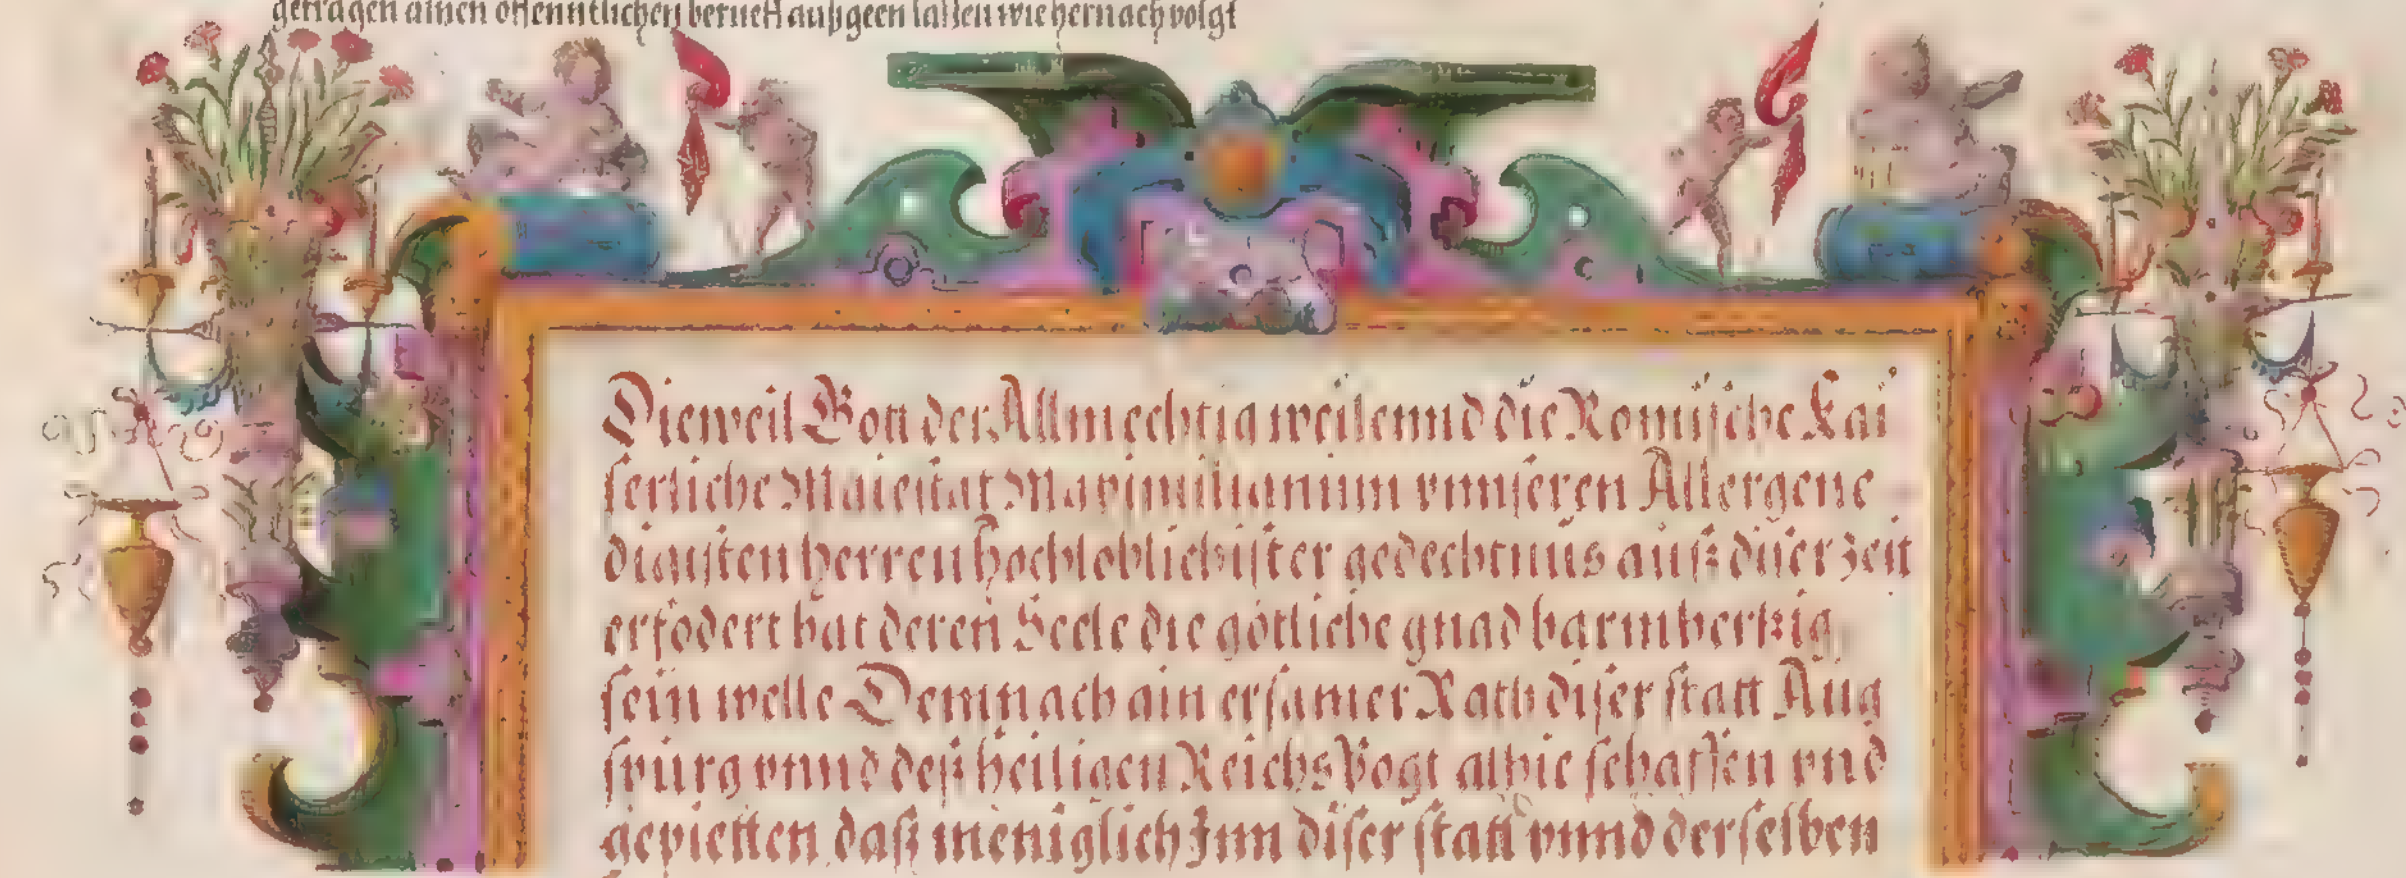 getragen ainen offenntlichen berueff außgeen lassen wie hernach volgt
Dieweil Gott der Allmechtig weilennd die Romische Kai
serliche Maiestat Maximilianum vnnseren Allergene
digisten herren hochloblichister gedechtnus auß diser zeit
erfodert hat deren Seele die götliche gnad barmhertzig
sein welle Demnach ain ersamer Rath diser statt Aug
spurg vnnd deß heiligen Reichs Vogt alhie schaffen vnd
gepietten daß meniglich Inn diser statt vnnd derselben